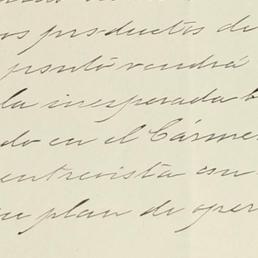 os productos de
pronto vendrá
la inesperada b
do en el Cárme
entrevista con
su plan de oper